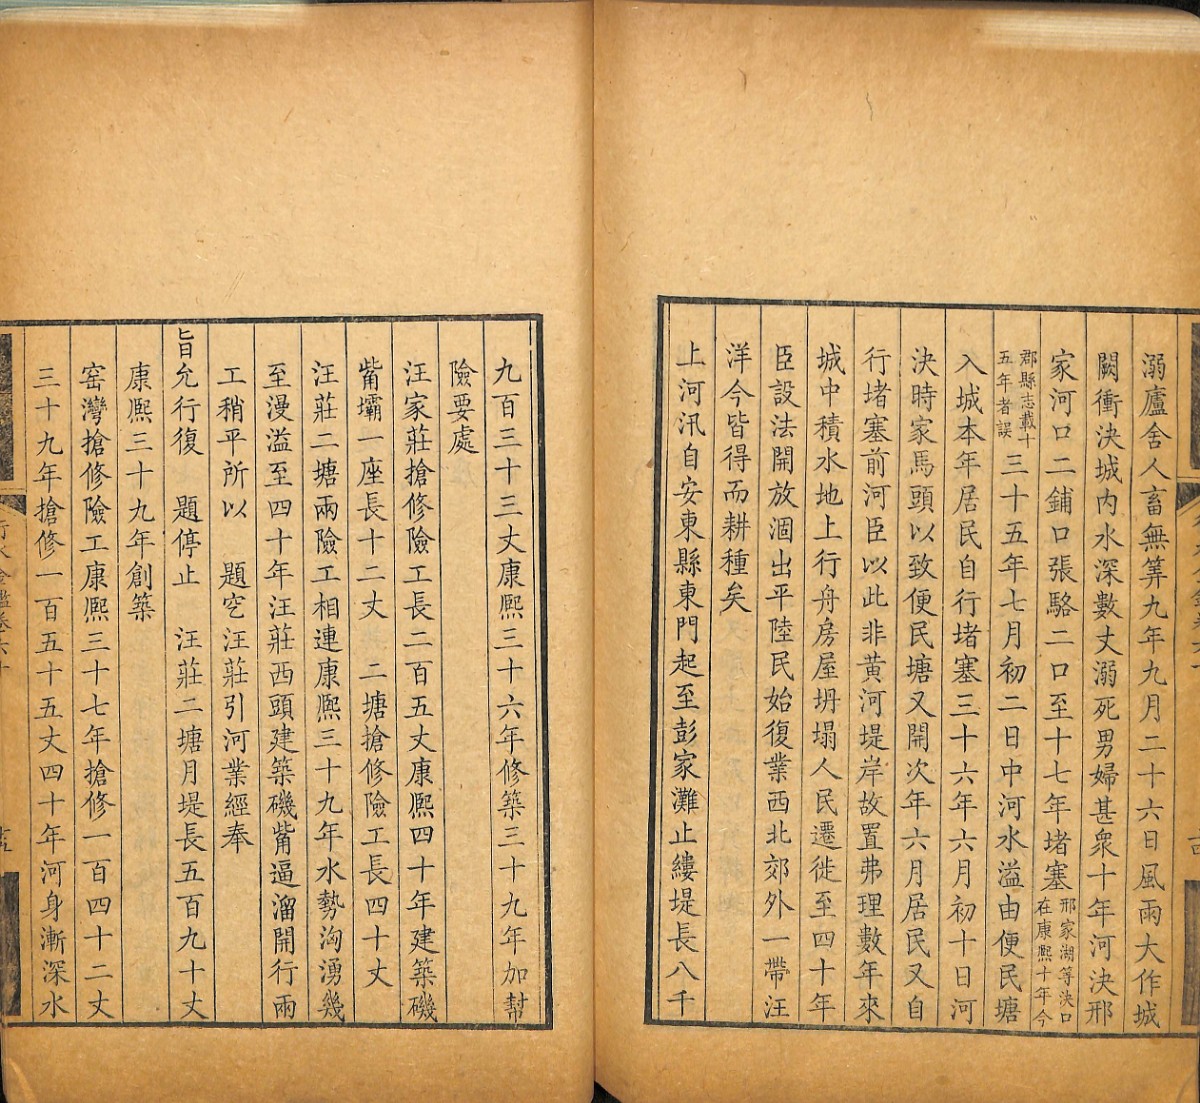 溺廬舍人畜無筭九年九月二十六日風雨大作城
闕衝決城内水深數丈溺死男婦甚衆十年河決邢
家河口二鋪口張駱二口至十七年堵塞邢家湖等決口在康熙十年今
郡縣志載十五年者誤三十五年七月初二日中河水溢由便民塘
入城本年居民自行堵塞三十六年六月初十日河
決時家馬頭以致便民塘又開次年六月居民又自
行堵塞前河臣以此非黃河堤岸故置弗理數年來
城中積水地上行舟房屋坍塌人民遷徙至四十年
臣設法開放涸出平陸民始復業西北郊外一帶汪
洋今皆得而耕種矣
上河汛自安東縣東門起至彭家灘止縷堤長八千
九百三十三丈康熙三十六年修築三十九年加幫
險要處
汪家莊搶修險工長二百五丈康熙四十年建築磯
觜壩一座長十二丈 二塘搶修險工長四十丈
汪莊二塘兩險工相連康熙三十九年水勢洶湧幾
至漫溢至四十年汪莊西頭建築磯觜逼溜開行兩
工稍平所以 題定汪莊引河業經奉
旨允行復 題停止 汪莊二塘月堤長五百九十丈
康熙三十九年創築
窑灣搶修險工康熙三十七年搶修一百四十二丈
三十九年搶修一百五十五丈四十年河身漸深水
行水金鑑卷六十